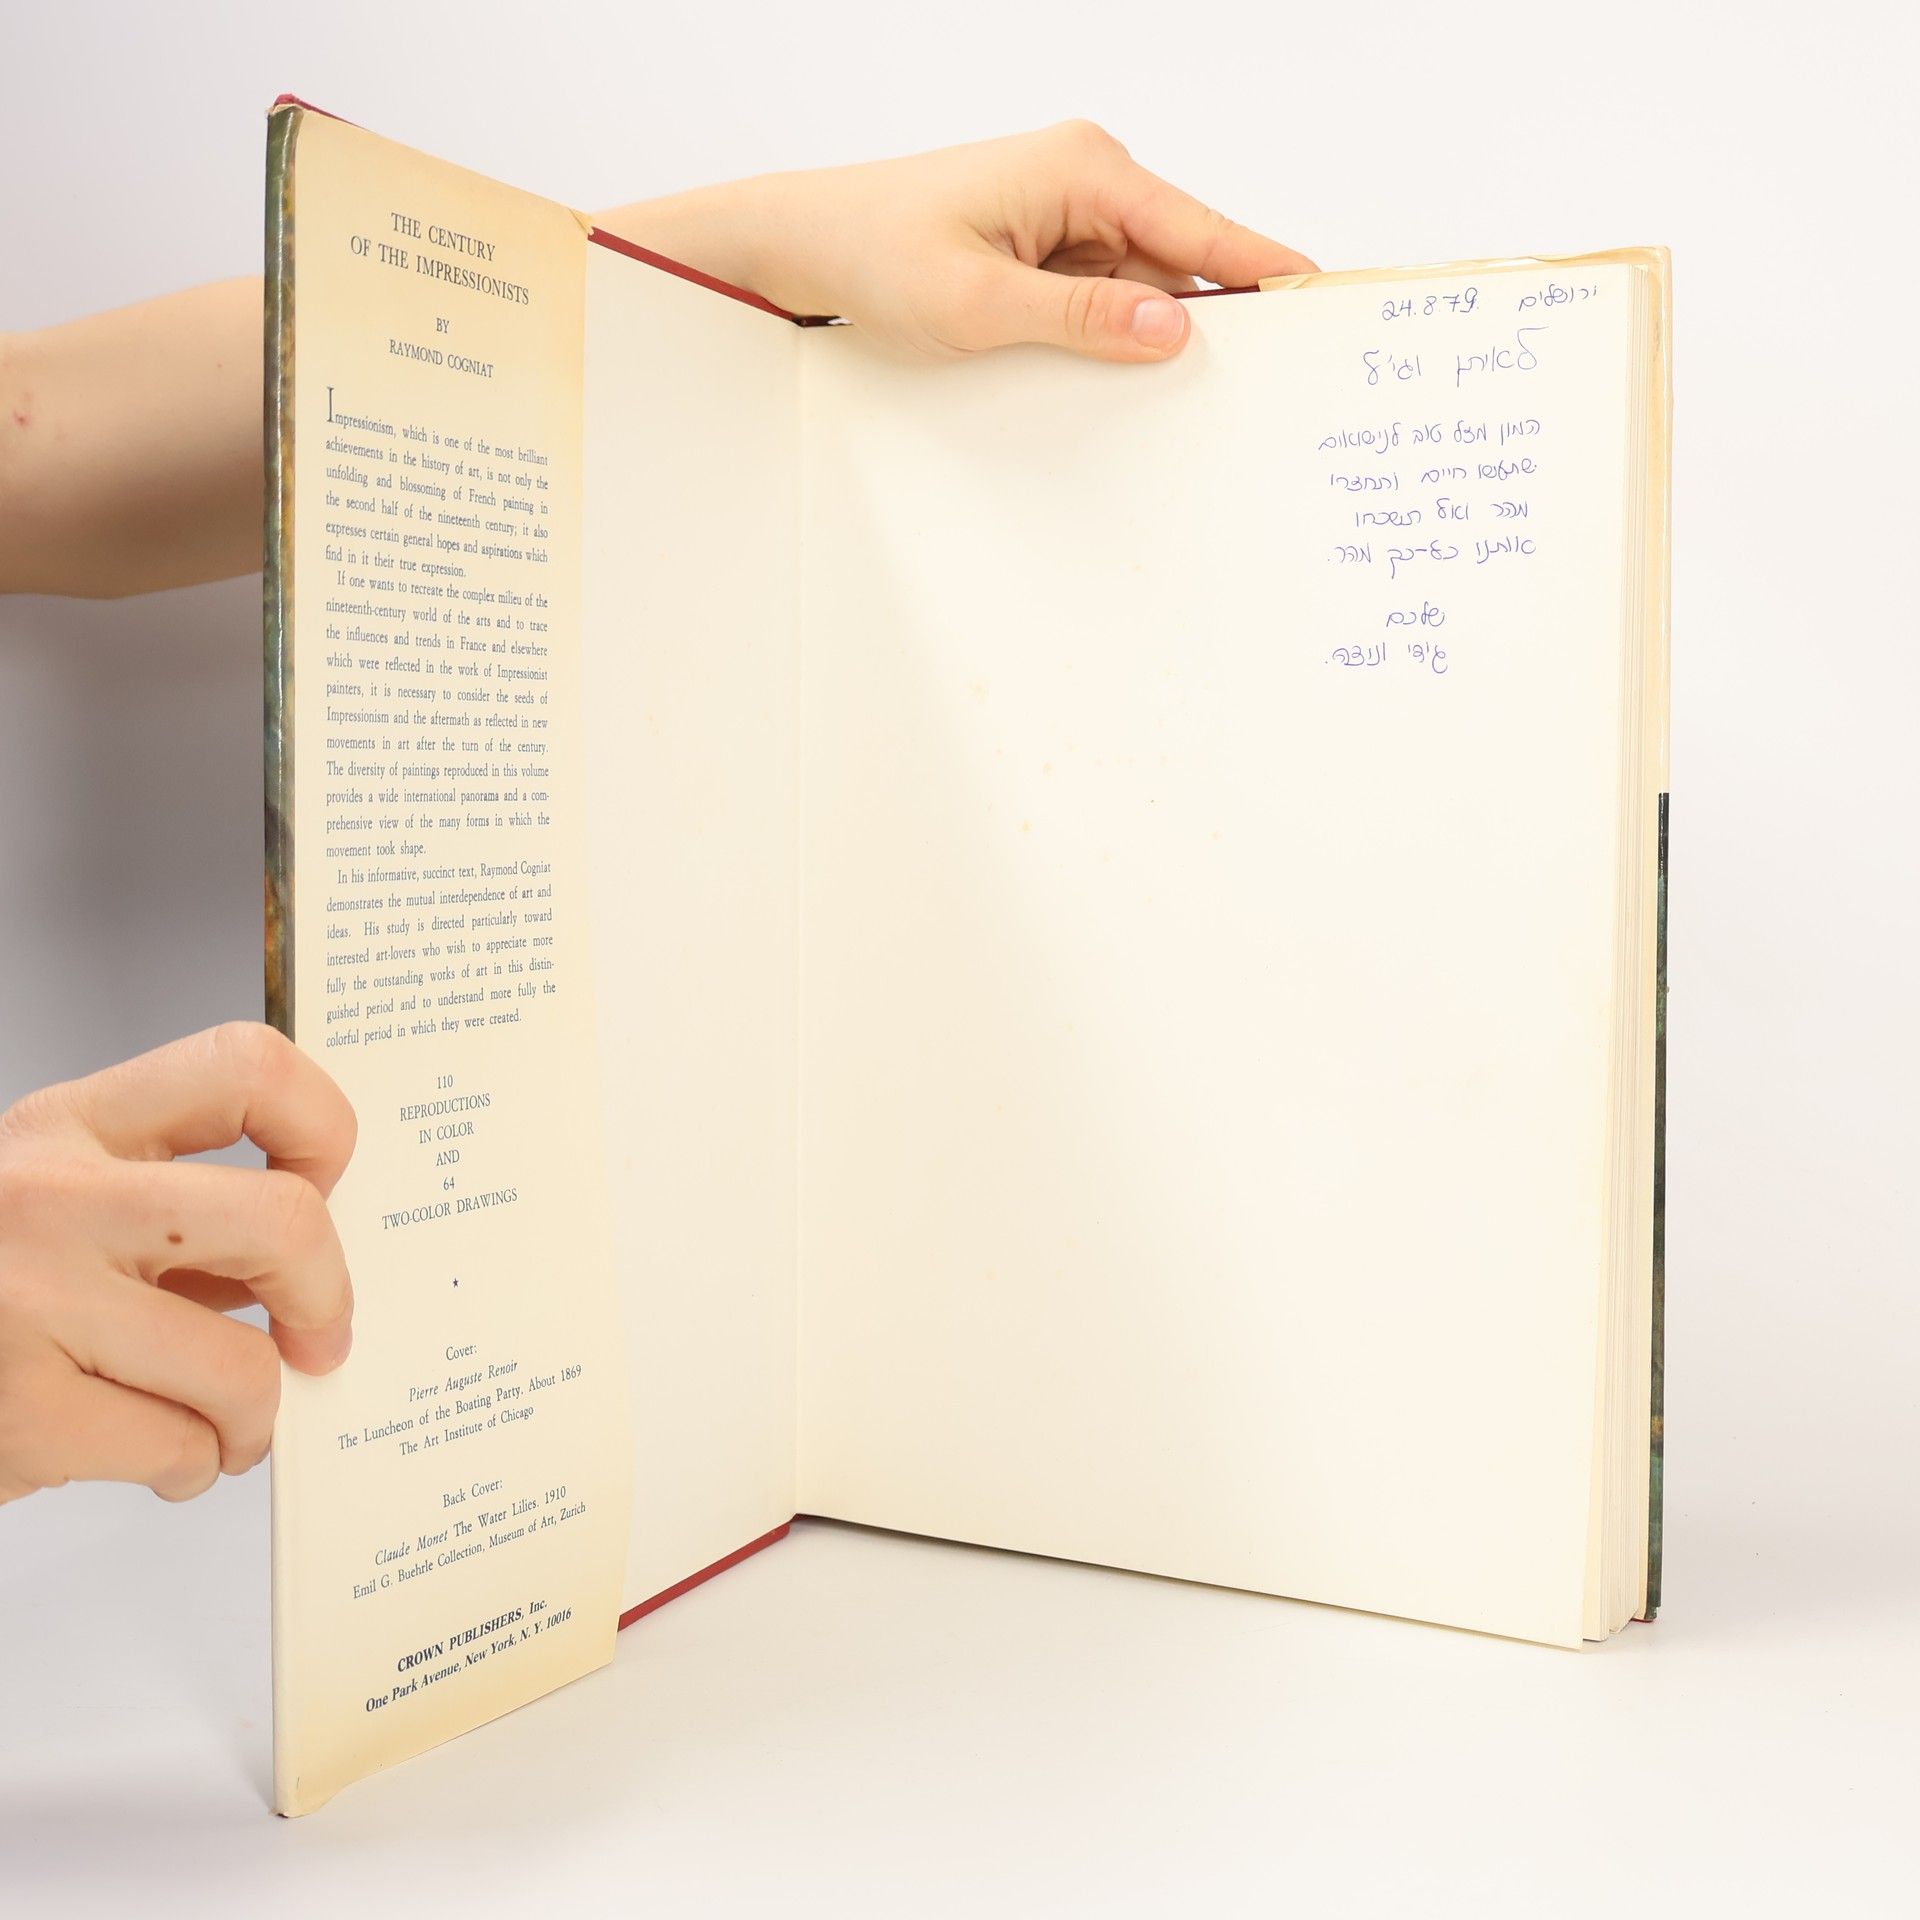 THE CENTURY
OF THE IMPRESSIONISTS
BY
RAYMOND COGNIAT
Impressionism, which is one of the most brilliant
achievements in the history of art, is not only the
unfolding and blossoming of French painting in
the second half of the nineteenth century; it also
expresses certain general hopes and aspirations which
find in it their true expression.
If one wants to recreate the complex milieu of the
nineteenth-century world of the arts and to trace
the influences and trends in France and elsewhere
which were reflected in the work of Impressionist
painters, it is necessary to consider the seeds of
Impressionism and the aftermath as reflected in new
movements in art after the turn of the century.
The diversity of paintings reproduced in this volume
provides a wide international panorama and a com-
prehensive view of the many forms in which the
movement took shape.
In his informative, succinct text, Raymond Cogniat
demonstrates the mutual interdependence of art and
ideas. His study is directed particularly toward
interested art-lovers who wish to appreciate more
fully the outstanding works of art in this distin-
guished period and to understand more fully the
colorful period in which they were created.
110
REPRODUCTIONS
IN COLOR
AND
64
TWO-COLOR DRAWINGS
★
Cover:
Pierre Auguste Renoir
The Luncheon of the Boating Party. About 1869
The Art Institute of Chicago
Back Cover:
Claude Monet The Water Lilies. 1910
Emil G. Buehrle Collection, Museum of Art, Zurich
CROWN PUBLISHERS, Inc.
One Park Avenue, New York, N. Y. 10016
ירושלים 24.8.79.
לאיתן וגי'ל
המון מזל טוב לנישואים
שתעשו חיים ותחזרו
מהר ואל תשכחו
אותנו כל-כך מהר.
שלכם
גידי וניצה.